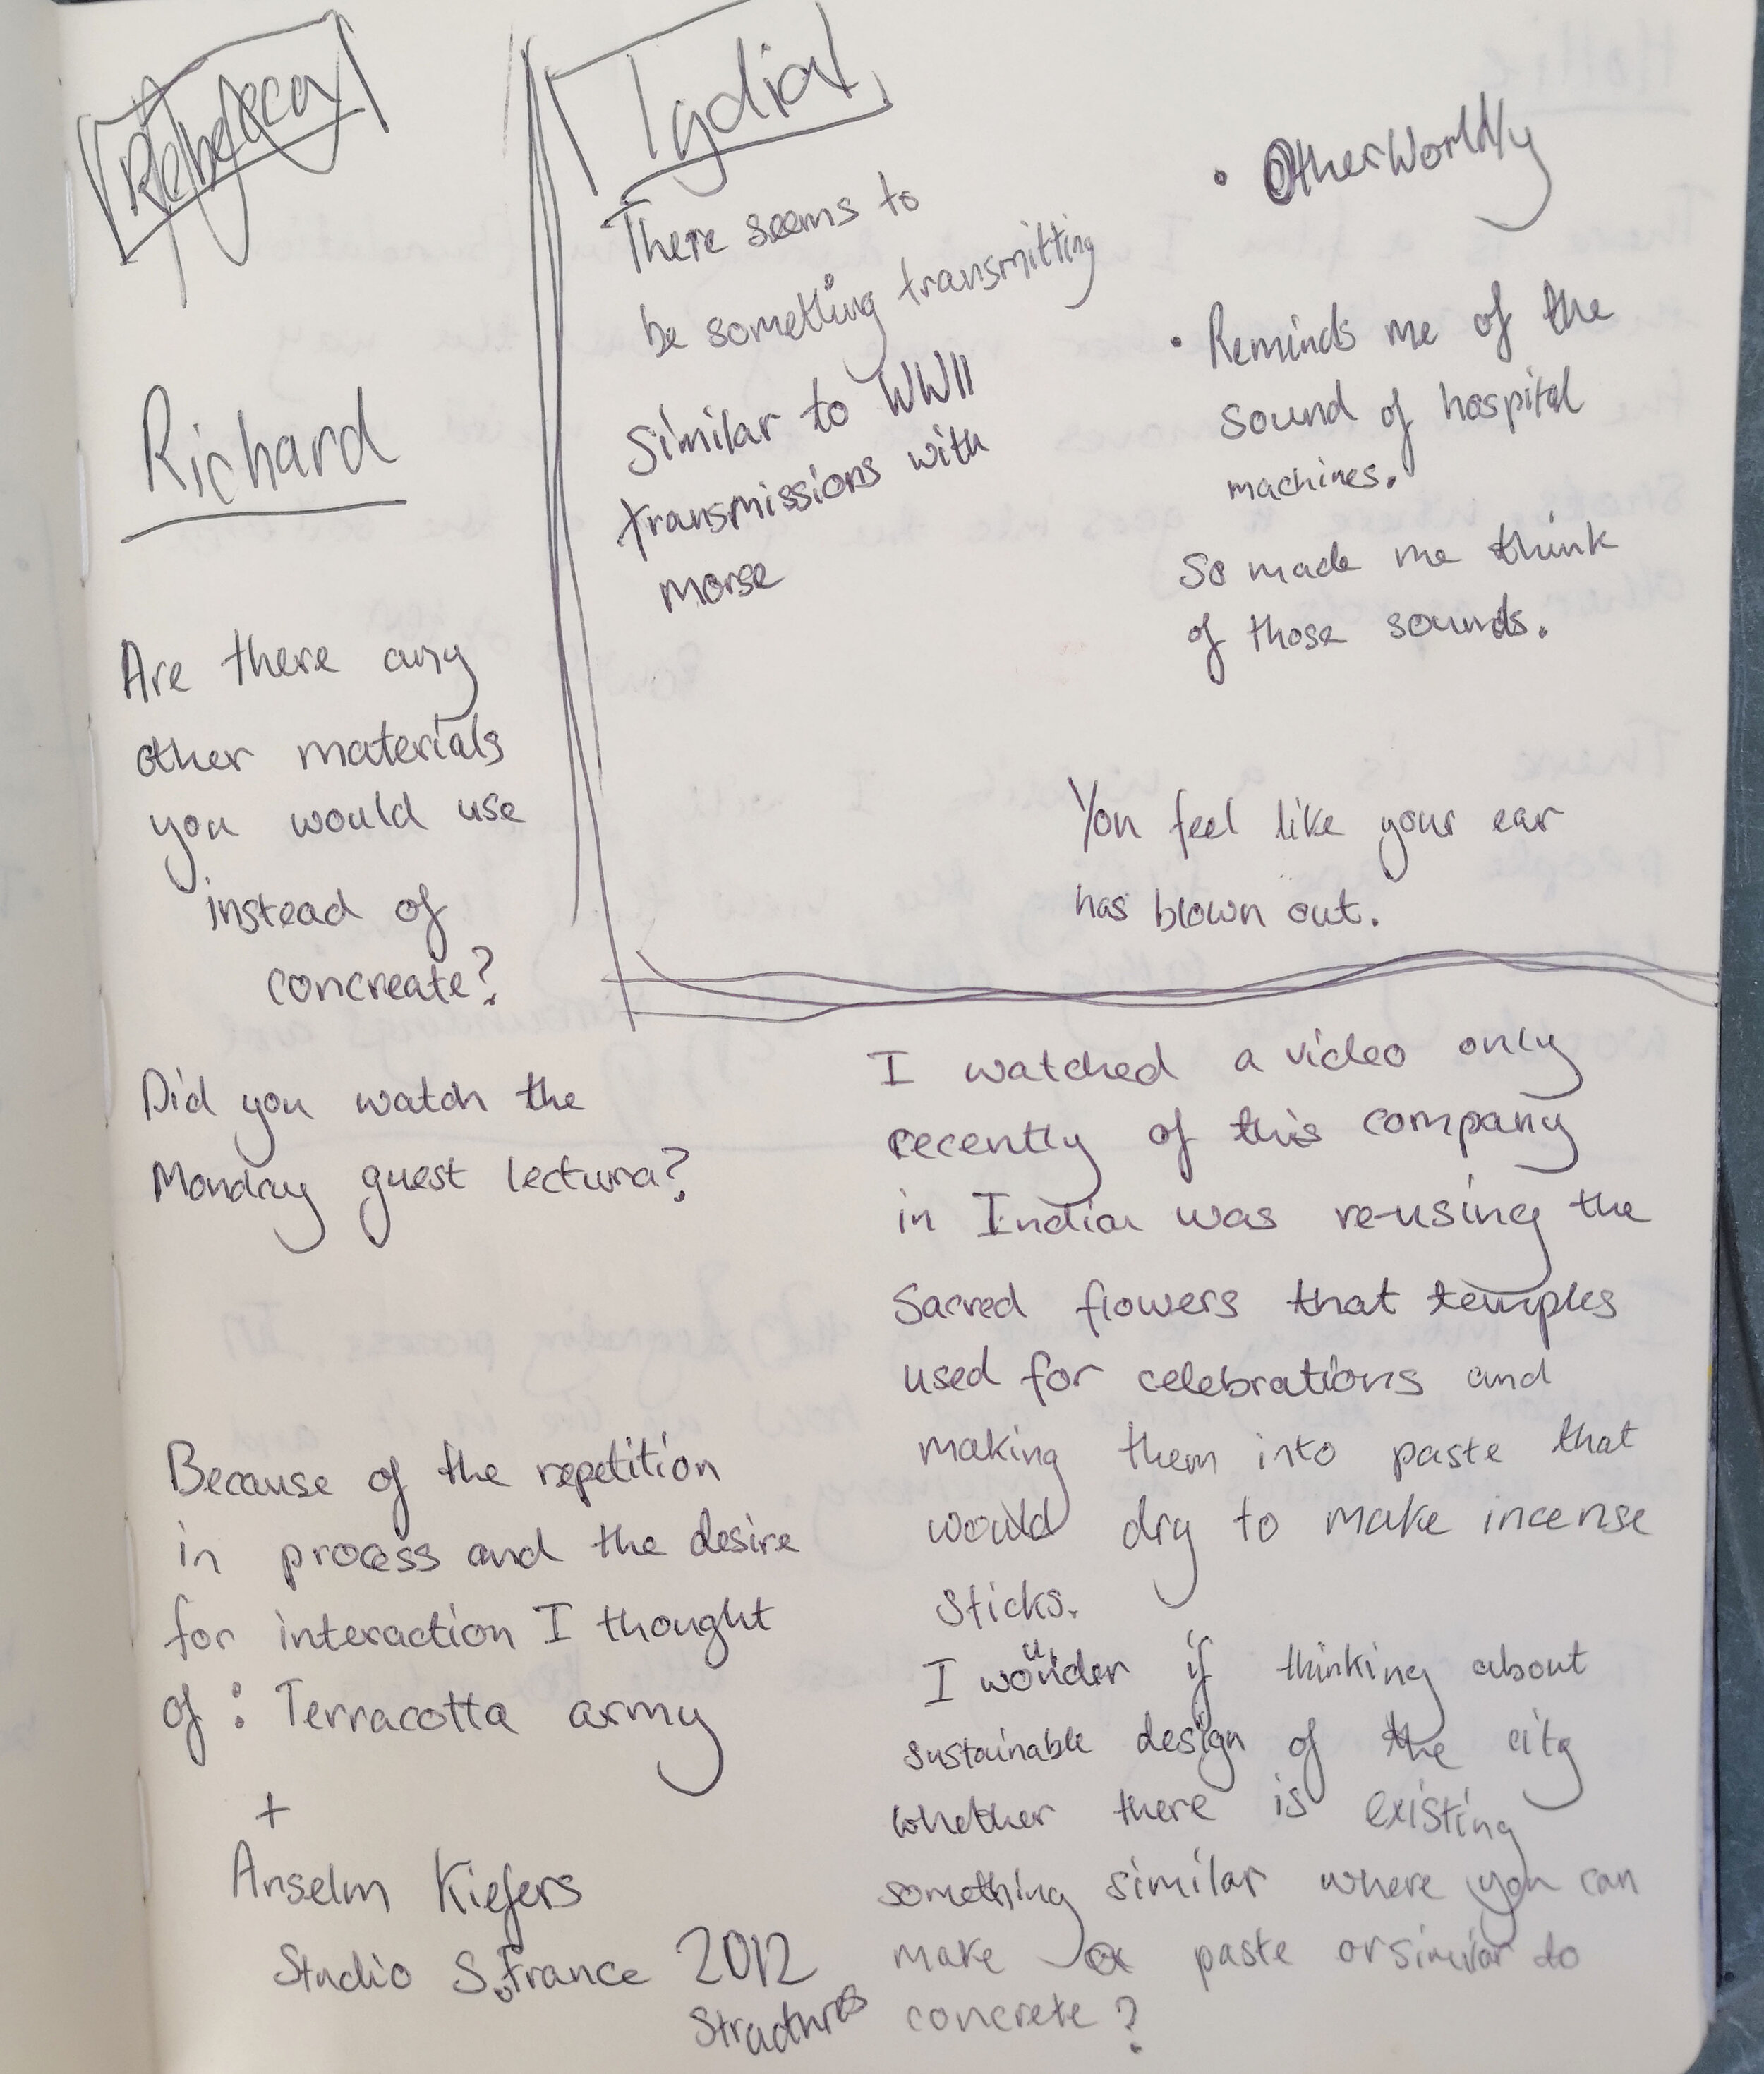 Rebecca
Lydia
There seems to
be something transmitting
Similar to WWII
transmissions with
morse
• OtherWorldly
• Reminds me of the
sound of hospital
machines.
So made me think
of those sounds.
You feel like your ear
has blown out.
Richard
Are there any
other materials
you would use
instead of
concreate?
Did you watch the
Monday guest lecture?
Because of the repetition
in process and the desire
for interaction I thought
of : Terracotta army
+
Anselm Kiefers
Studio S.France 2012
Structures
I watched a video only
recently of this company
in India was re-using the
Sacred flowers that temples
used for celebrations and
making them into paste that
would dry to make incense
sticks.
I wonder if thinking about
sustainable design of the city
whether there is existing
something similar where you can
make a paste or similar to
concrete?